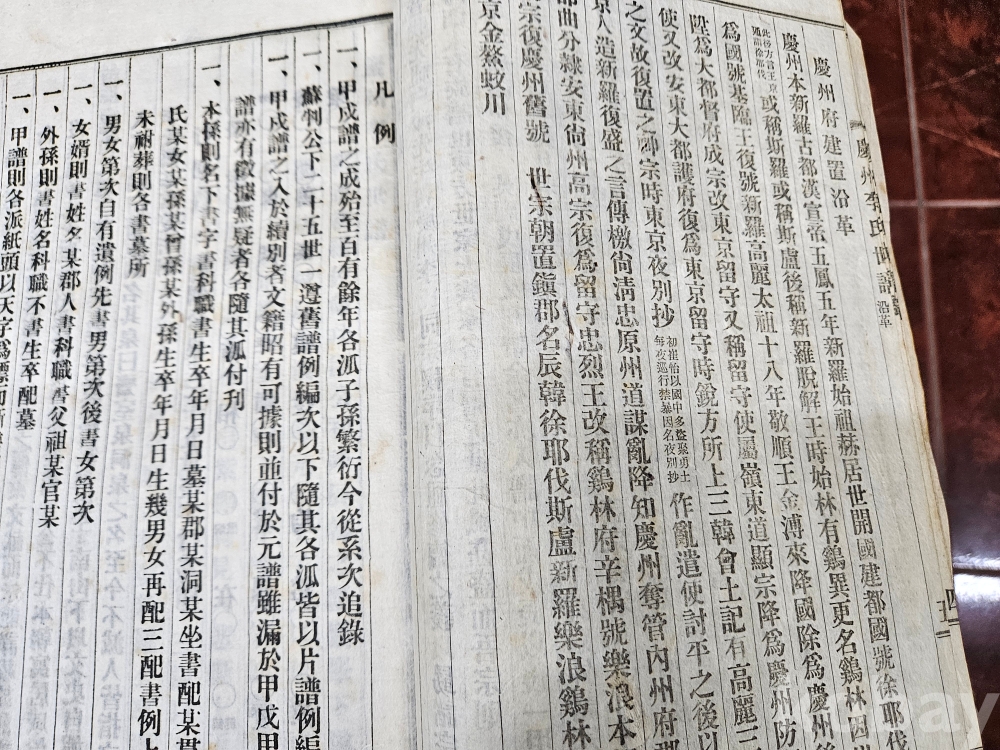 慶州府建置沿革
慶州李氏世譜 沿革
慶州本新羅古都漢宣帝五鳳五年新羅始祖赫居世開國建都國號徐耶伐
此後方言王京
通謂徐那伐
或稱斯羅或稱斯盧後稱新羅脫解王時始林有鷄異更名鷄林因
爲國號基臨王復號新羅高麗太祖十八年敬順王金溥來降國除爲慶州
陞爲大都督府成宗改東京留守又稱留守使屬嶺東道顯宗降爲慶州防
使又改安東大都護府復爲東京留守時銳方所上三韓會土記有高麗三
之文故復置之 宗時東京夜別抄
初崔怡以國中多盜聚勇士
每夜巡行禁暴因名夜別抄
作亂遣使討平之後以
京人造新羅復盛之言傳檄尙淸忠原州道謀亂降知慶州奪管內州府郡
部曲分隸安東尙州高宗復爲留守忠烈王改稱鷄林府辛禑號樂浪本
宗復慶州舊號 世宗朝置鎭郡名辰韓徐耶伐斯盧新羅樂浪鷄林
京金鰲蚊川
四
凡例
一、甲戍譜之成殆至百有餘年各派子孫繁衍今從系次追錄
一、蘇判公下二十五世一遵舊譜例編次以下隨其各派皆以片譜例編
一、甲戍譜之入於續別者文籍昭有可據則並付於元譜雖漏於甲戊甲
譜亦有徵據無疑者各隨其派付刊
一、本孫則名下書字書科職書生卒年月日墓某郡某洞某坐書配某貫
氏某女某孫某曾孫某外孫生卒年月日生幾男女再配三配書例上
未祔葬則各書墓所
一、男女第次自有遺例先書男第次後書女第次
一、女婿則書姓名某郡人書科職書父祖某官某
一、外孫則書姓名科職不書生卒配墓
一、甲譜則各派紙頭以天字爲標